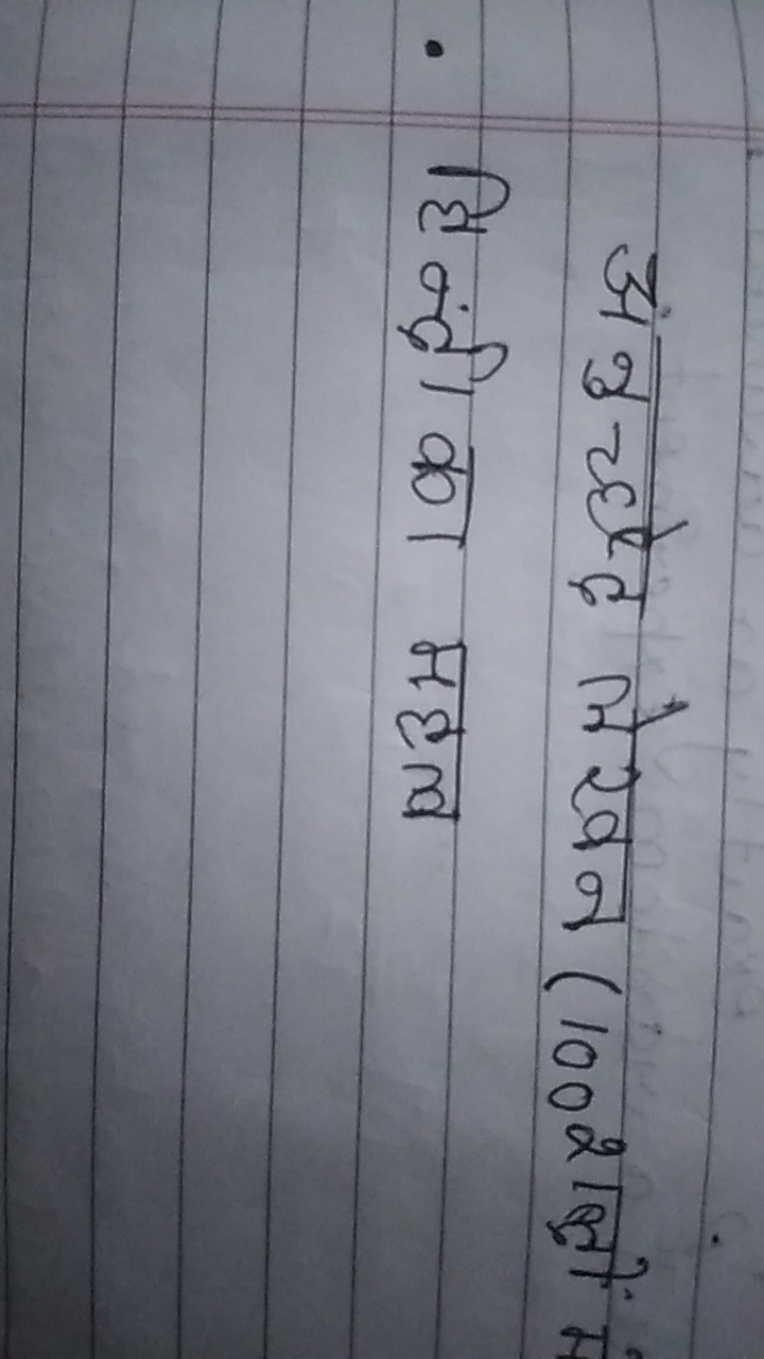 अनुच्छेद लेखन (100 शब्दों में
• हिन्दी का महत्व